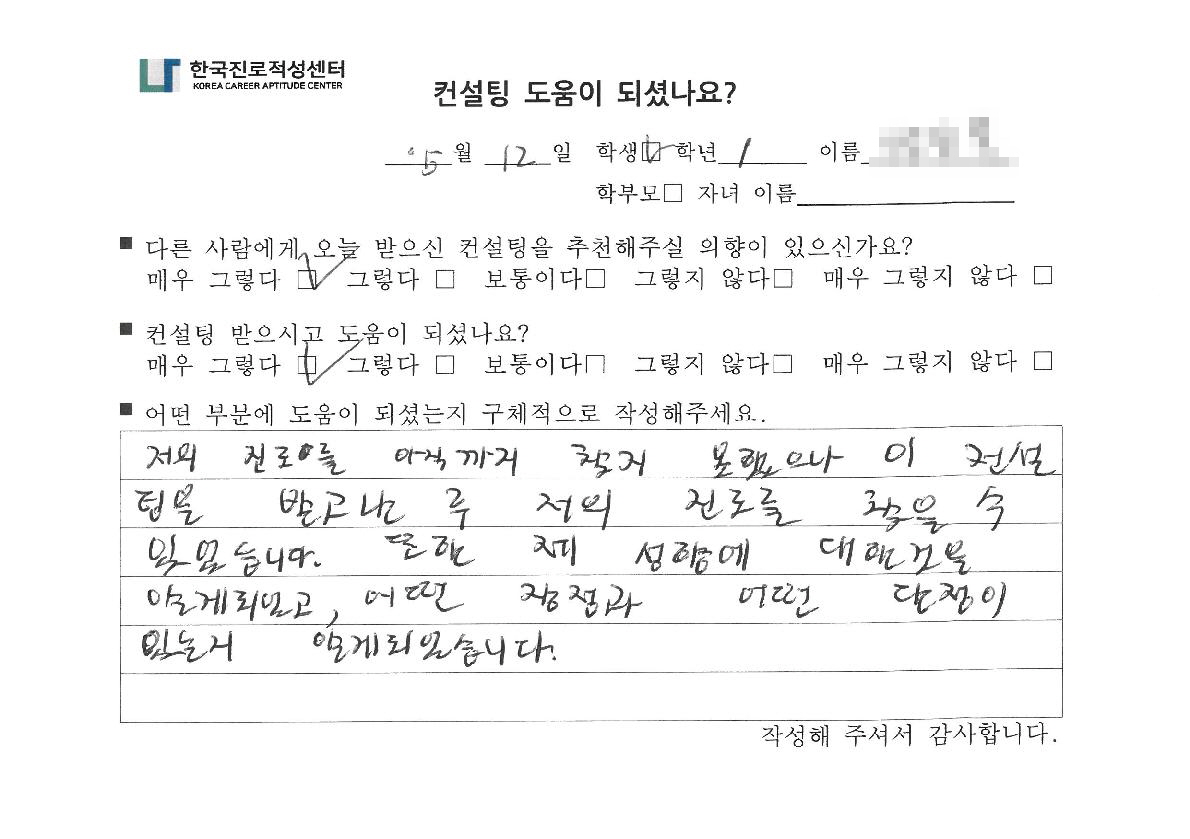 한국진로적성센터
KOREA CAREER APTITUDE CENTER
컨설팅 도움이 되셨나요?
5월 12일 학생☑ 학년 1 이름
학부모□ 자녀 이름
■ 다른 사람에게 오늘 받으신 컨설팅을 추천해주실 의향이 있으신가요?
매우 그렇다 ☑ 그렇다 □ 보통이다□ 그렇지 않다□ 매우 그렇지 않다 □
■ 컨설팅 받으시고 도움이 되셨나요?
매우 그렇다 ☑ 그렇다 □ 보통이다□ 그렇지 않다□ 매우 그렇지 않다 □
■ 어떤 부분에 도움이 되셨는지 구체적으로 작성해주세요.
저의 진로를 아직까지 찾지 못했으나 이 컨설
팅을 받고나는 후 저의 진로를 찾을 수
있었습니다. 또한 제 성향에 대한것을
알게되었고, 어떤 장점과 어떤 단점이
있는지 알게되었습니다.
작성해 주셔서 감사합니다.